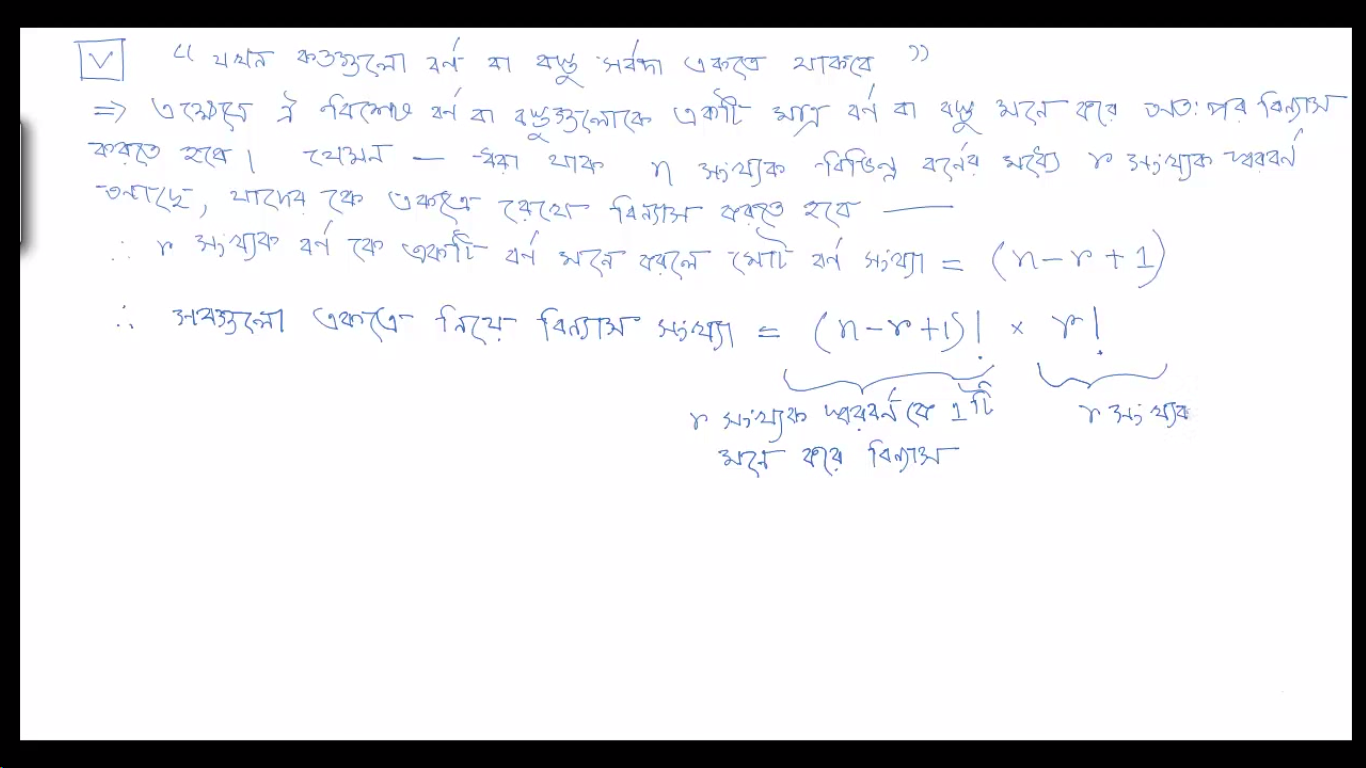 V “ যখন কতগুলো বর্ণ বা বস্তু সর্বদা একত্রে থাকবে ”
⇒ এক্ষেত্রে ঐ বিশেষ বর্ণ বা বস্তুগুলোকে একটি মাত্র বর্ণ বা বস্তু মনে করে অতঃপর বিন্যাস
করতে হবে । যেমন — ধরা যাক n সংখ্যক বিভিন্ন বর্ণের মধ্যে r সংখ্যক স্বরবর্ণ
আছে, যাদের কে একত্রে রেখে বিন্যাস করতে হবে —
∴ r সংখ্যক বর্ণ কে একটি বর্ণ মনে করলে মোট বর্ণ সংখ্যা = (n-r+1)
∴ সবগুলো একত্রে নিয়ে বিন্যাস সংখ্যা = (n-r+1)! × r!
r সংখ্যক স্বরবর্ণ কে 1 টি r সংখ্যক
মনে করে বিন্যাস